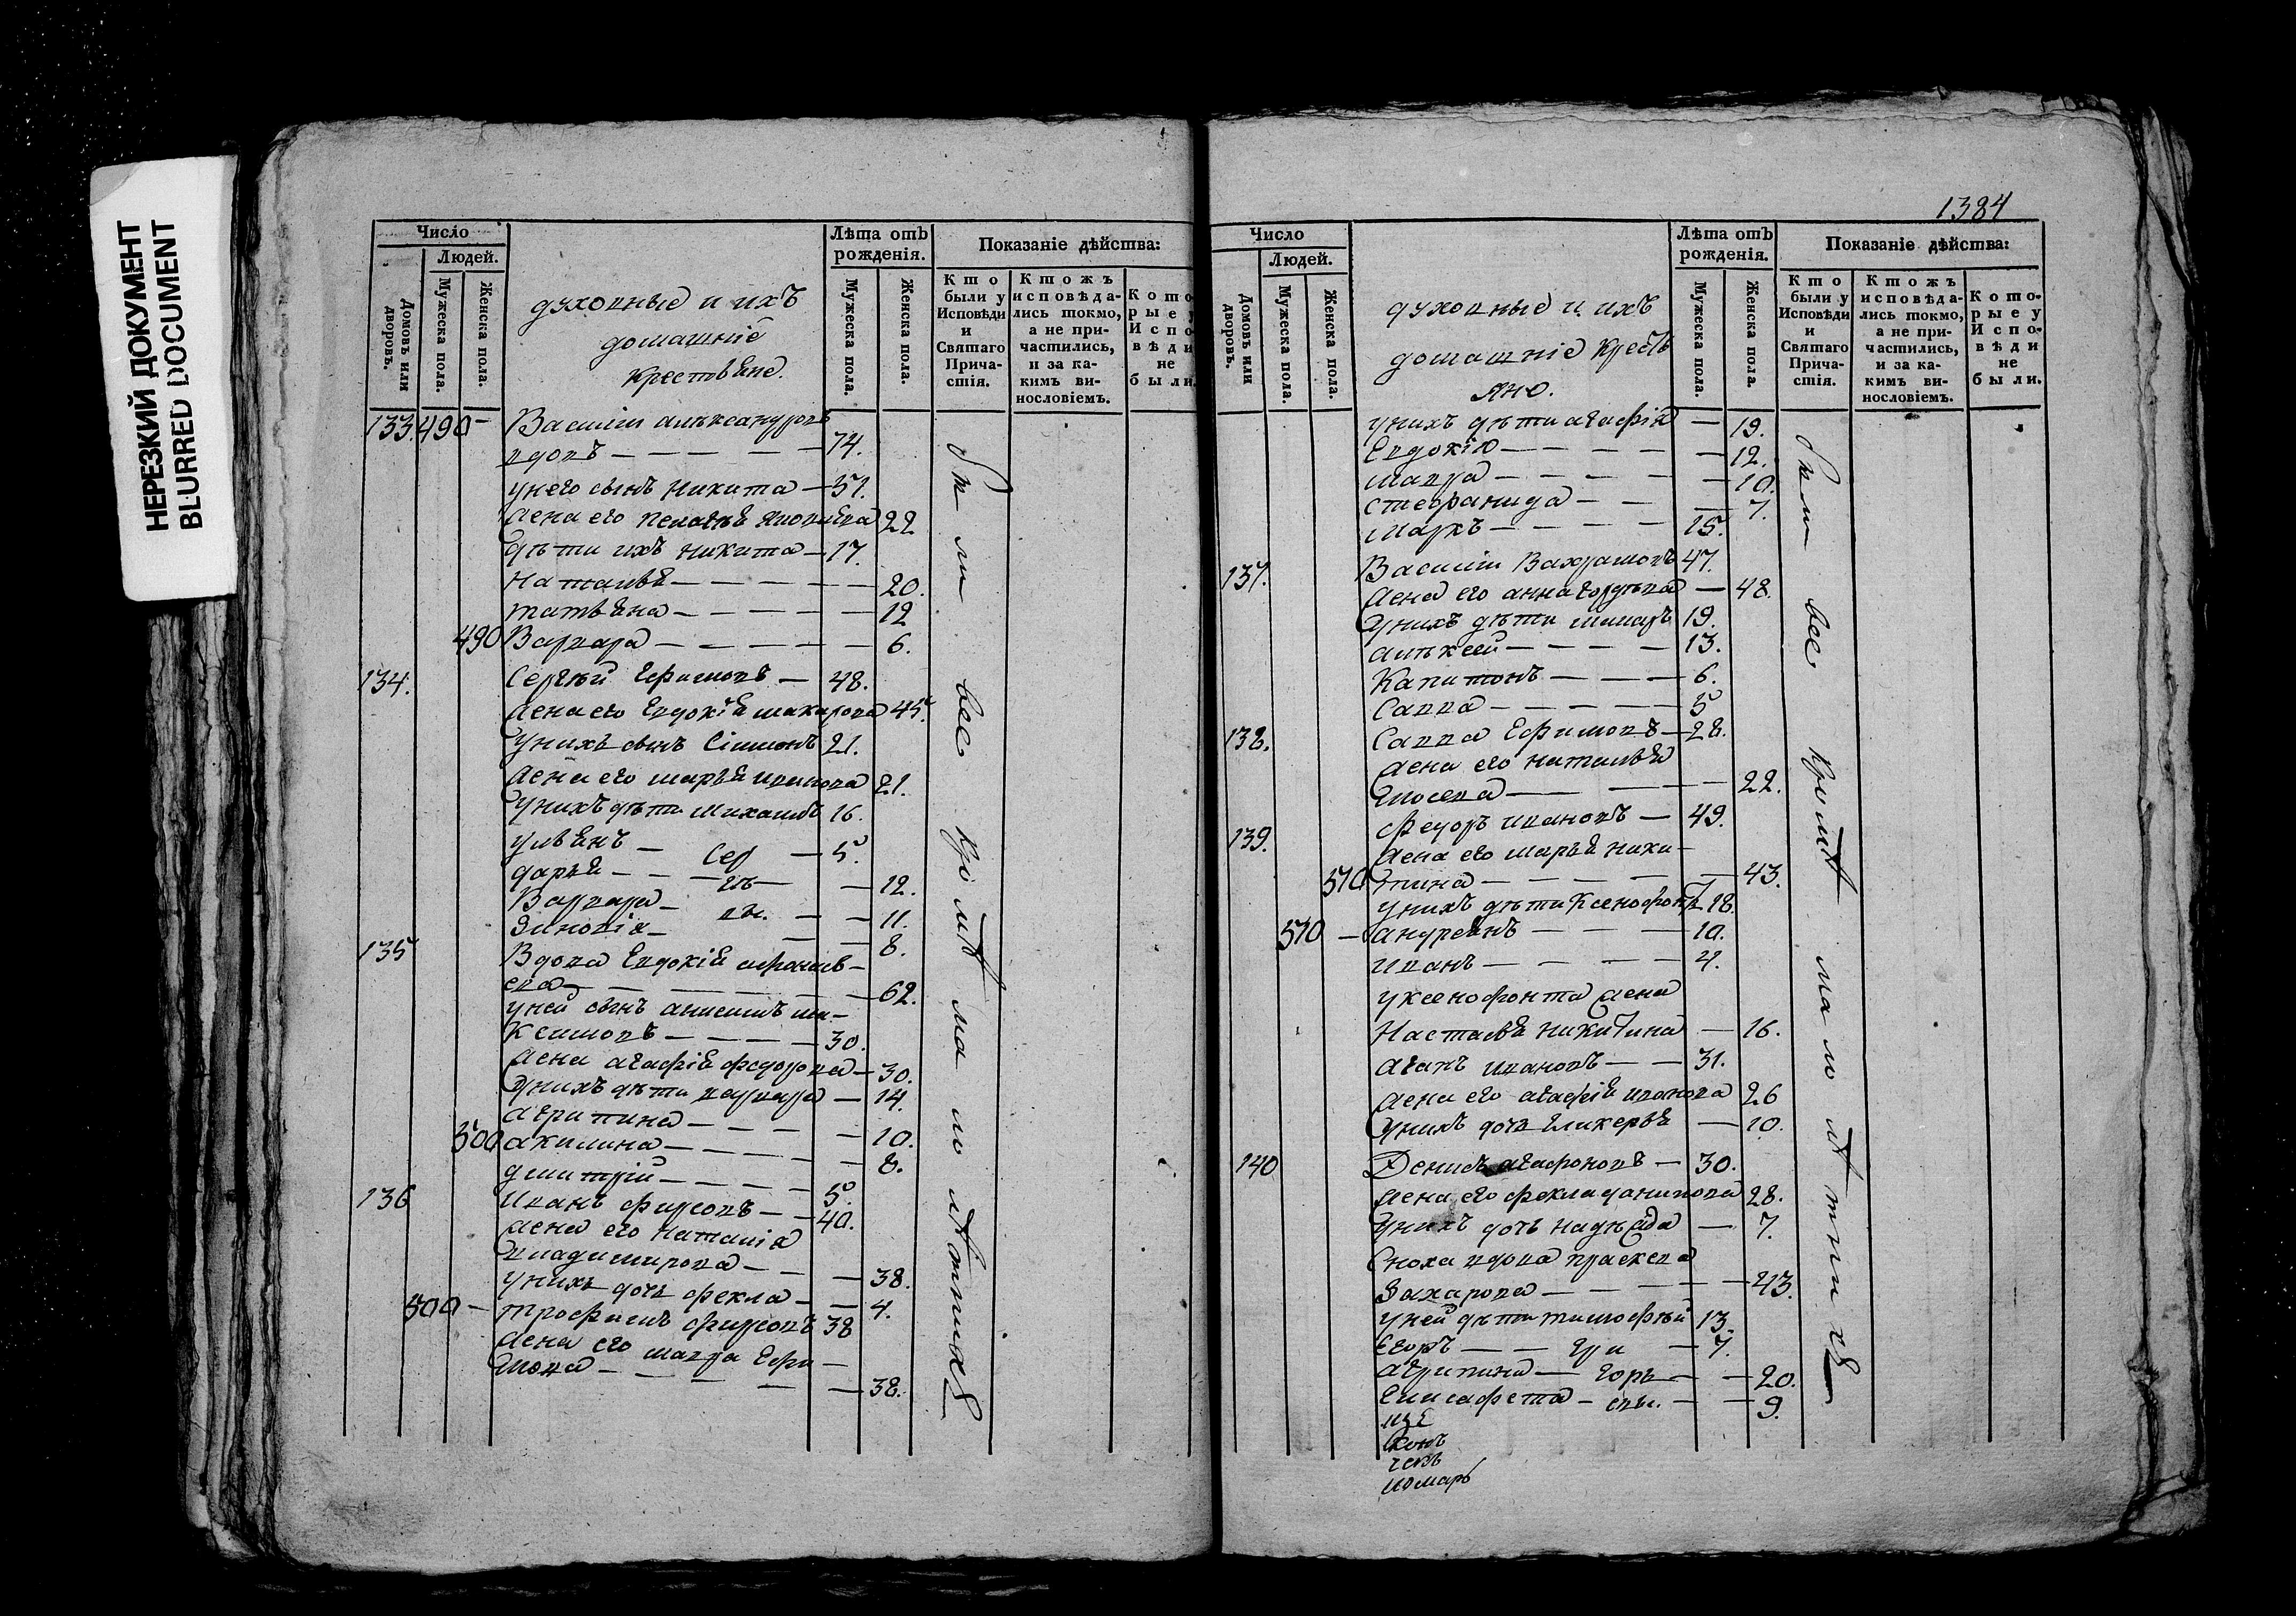 НЕРЕЗКИЙ ДОКУМЕНТ
BLURRED DOCUMENT
Число
Людей.
Домовъ или дворовъ.
Мужеска пола.
Женска пола.
духовные и ихъ
домашніе
крестьяне.
Лѣта отъ рожденія.
Мужеска пола.
Женска пола.
Показаніе дѣйства:
Кто были у Исповѣди и Святаго Причастія.
Ктожъ исповѣдались токмо, а не причастились, и за какимъ винословіемъ.
Которые у Исповѣди не были.
133. 490 — Василій алѣксандровъ
вдовъ — 74.
унего сынъ Никита — 37.
жена его Пелагѣя 22
дѣти ихъ никита — 17.
Наталья — 20.
татьяна — 12
490 Варвара — 6.
134. Сергѣй Ефимовъ — 48.
жена его Евдокія макарова 45.
унихъ сынъ Сімионъ 21.
жена его марья иванова 21.
унихъ дѣти Михаилъ 16.
ульянъ — 5.
дарья — 12.
Варвара — 11.
Зиновія — 8.
Сер
гѣ
вы.
135 Вдова Евдокія афонасьева — 62.
уней сынъ анисимъ ма-
ксимовъ — 30.
жена агафія федорова — 30.
унихъ дѣти варвара — 14.
агрипина — 10.
500 акилина — 8.
дмитрій — 5.
136 Иванъ фирсовъ — 40.
жена его Наталія
владимирова — 38.
унихъ дочь фекла — 4.
500 — трофимъ фирсовъ 38
жена его мавра Ефи-
мова — 38.
были все кромѣ малолѣтнихъ
1384
Число
Людей.
Домовъ или дворовъ.
Мужеска пола.
Женска пола.
духовные и ихъ
домашніе крестьяне.
Лѣта отъ рожденія.
Мужеска пола.
Женска пола.
Показаніе дѣйства:
Кто были у Исповѣди и Святаго Причастія.
Ктожъ исповѣдались токмо, а не причастились, и за какимъ винословіемъ.
Которые у Исповѣди не были.
унихъ дѣти агафія — 19.
Евдокія — 12.
мавра — 10.
стефанида — 7.
Маркъ — 15.
137. Василій Вахрамовъ 47.
жена его анна гордѣева — 48.
унихъ дѣти макаръ 19.
алѣксей — 13.
Капитонъ — 6.
Савва — 5
138. Савва Ефимовъ — 28.
жена его наталья
— 22.
139. федоръ ивановъ — 49.
жена его марья ники-
510 тина — 43.
унихъ дѣти Ксенофонтъ 18.
510 — андреянъ — 10.
Иванъ — 4.
уксенофонта жена
Настасья никитина — 16.
агапъ ивановъ — 31.
жена его агафія иванова 26
унихъ дочь гликерья — 10.
140 Денисъ агафоновъ — 30.
жена его фекла данилова 28.
унихъ дочь надѣжда — 7.
Сноха вдова праскева
Захарова — 43.
уней дѣти тимофѣй 13.
Егоръ — 7.
агрипина — 20.
Елисафета — 9.
Гри
горь
евы.
були все кромѣ малолѣтнихъ
номарь